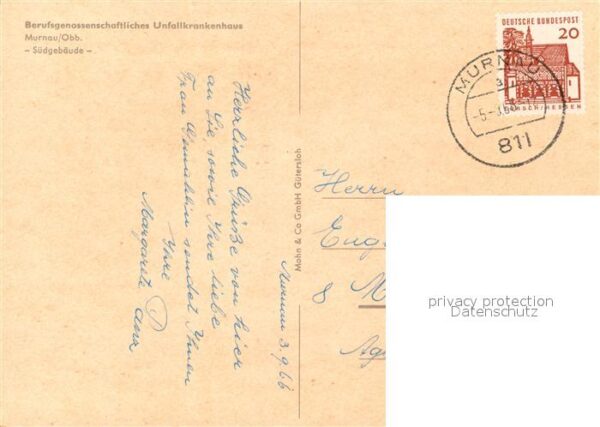 Berufsgenossenschaftliches Unfallkrankenhaus
Murnau/Obb.
– Südgebäude –
DEUTSCHE BUNDESPOST
20
LORSCH/HESSEN
MURNAU
811
Herzliche Grüße von hier
an Sie, sowie Ihre liebe
Frau Gemahlin sendet Ihnen
Ihre
Margarete
Murnau 3.9.66
Mohn & Co GmbH Gütersloh
Herrn
Eng
8 M
Ag
privacy protection
Datenschutz